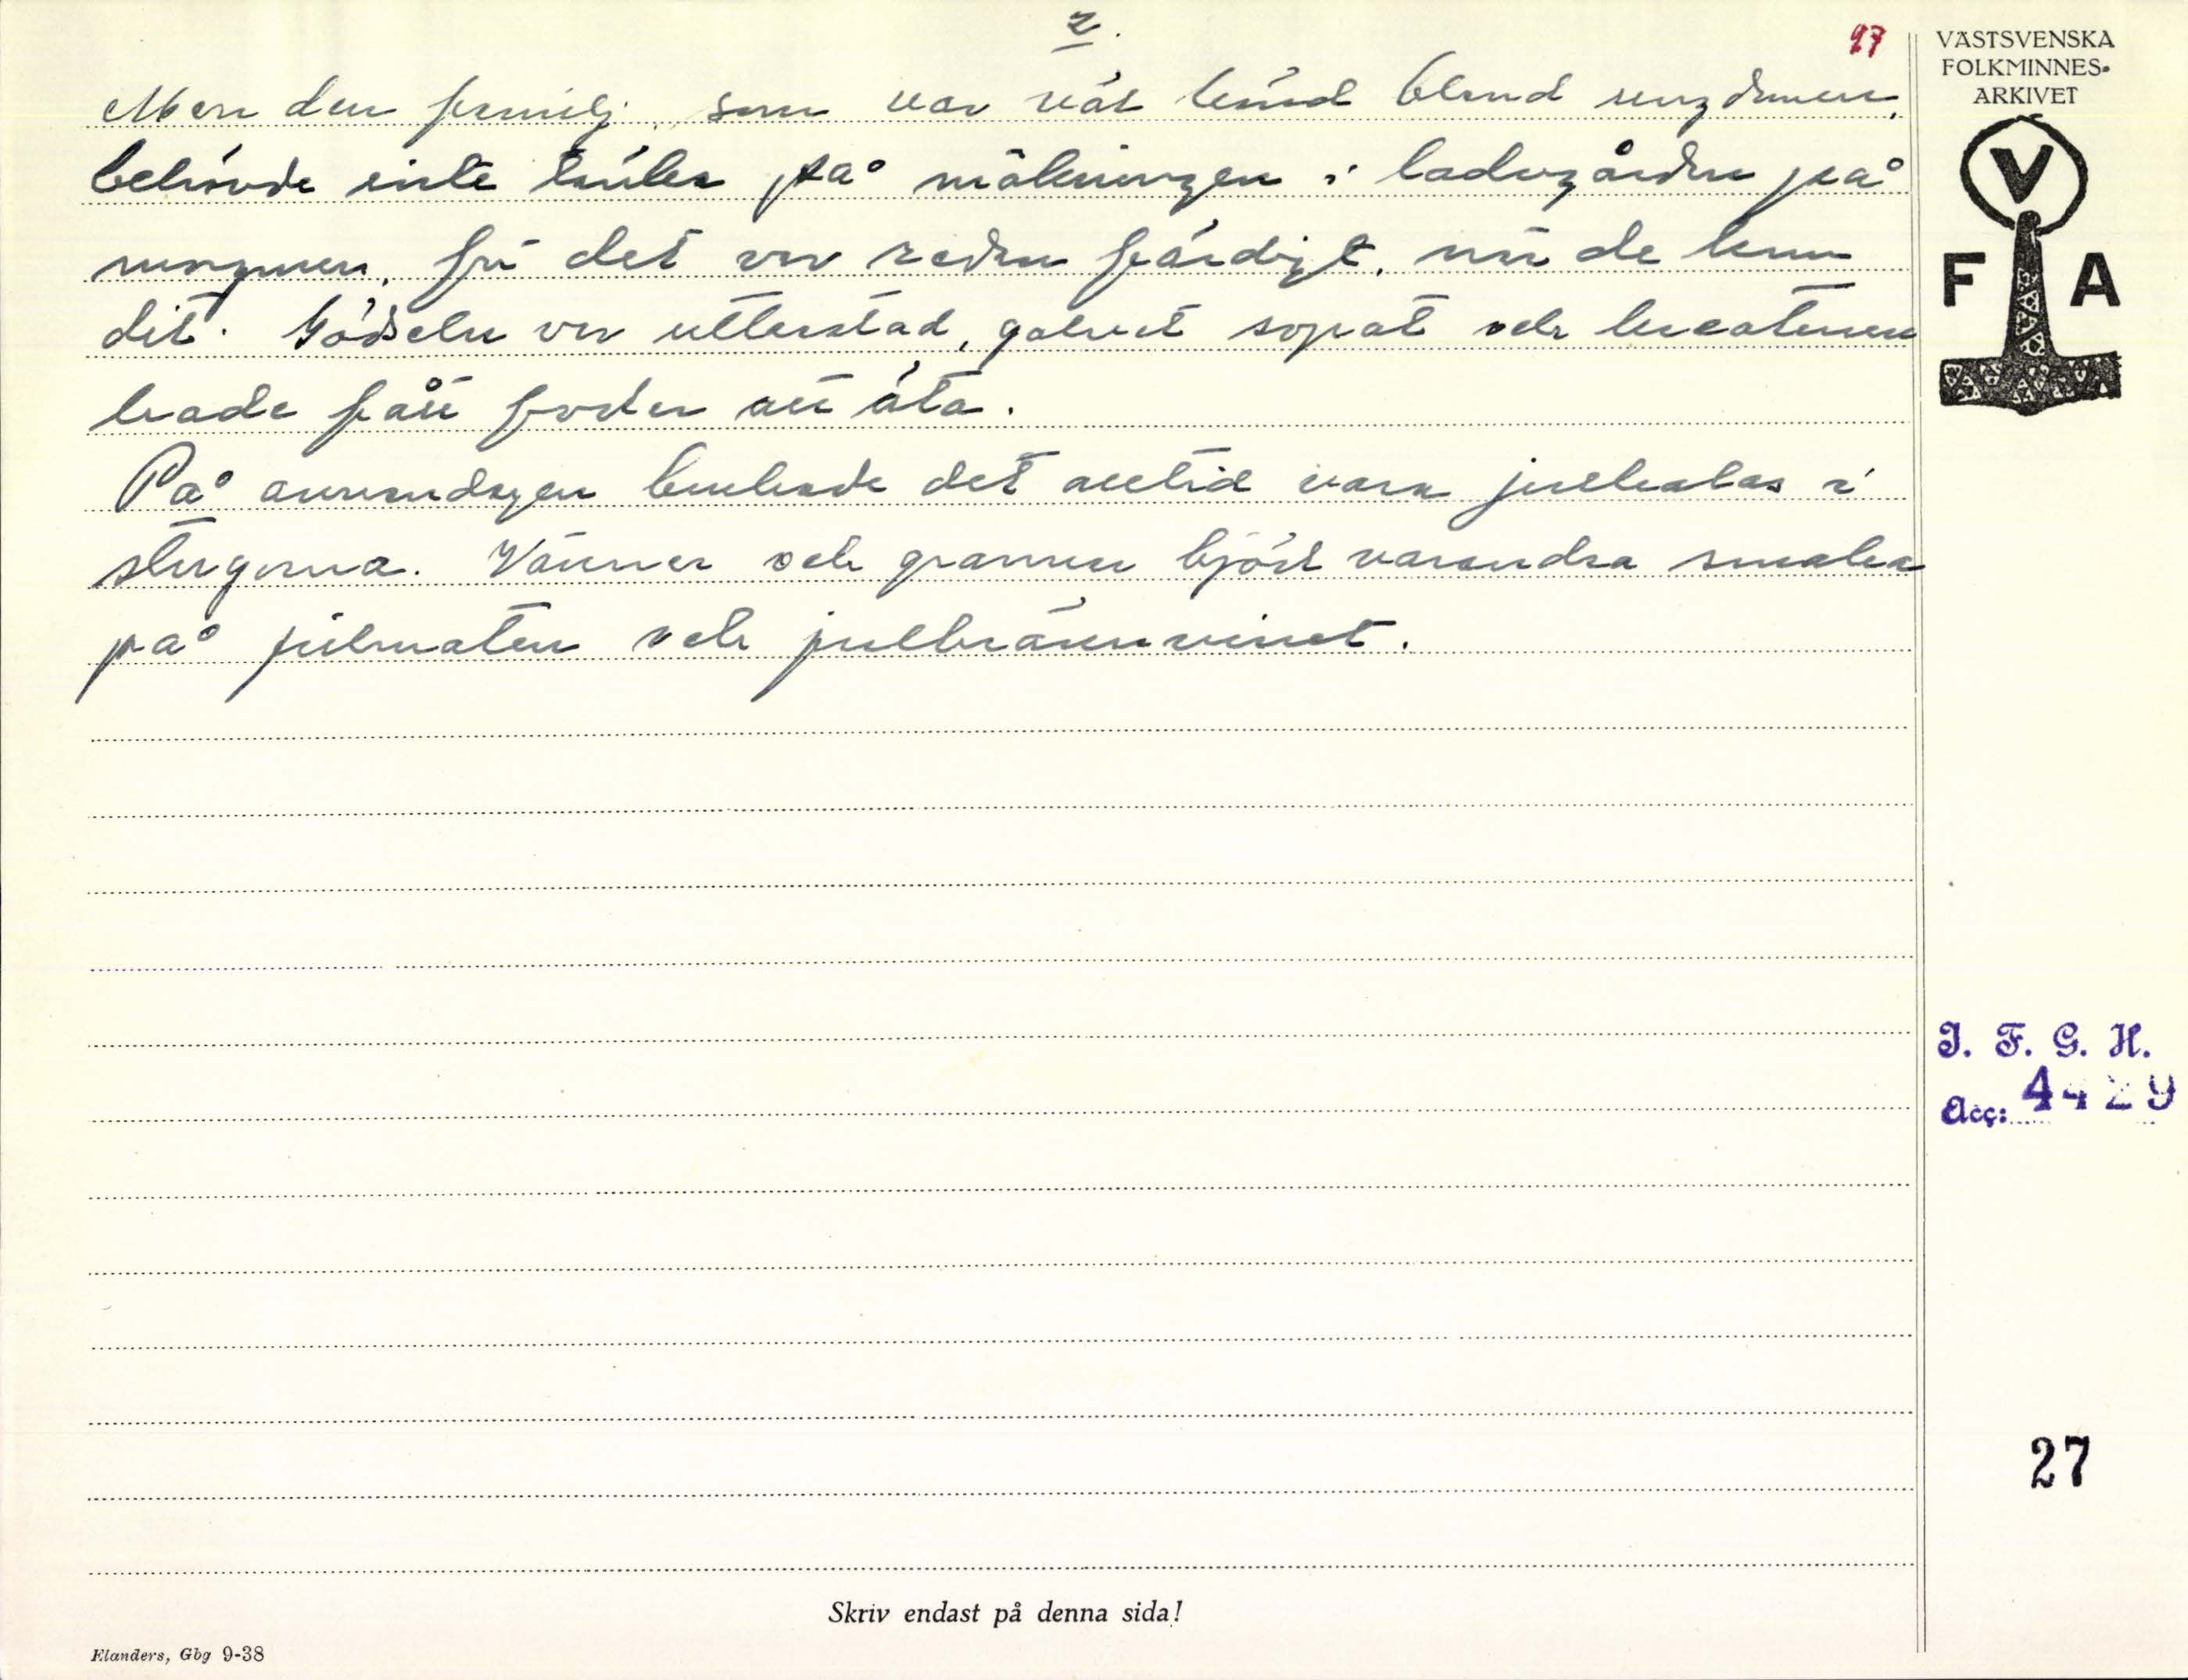 2.
27
Men den familj, som var väl känd bland ungdomen,
behövde inte tänka på mökningen i ladugården på
morgonen, för det var redan färdigt, när de kom
dit. Gödseln var utkastad, golvet sopat och kreaturen
hade fått foder att äta.
På annandagen brukade det alltid vara julkalas i
stugorna. Vänner och grannar bjöd varandra smaka
på julmaten och julbrännvinet.
VÄSTSVENSKA
FOLKMINNES-
ARKIVET
V
F A
I. F. G. H.
Acc: 4429
27
Skriv endast på denna sida!
Elanders, Gbg 9-38